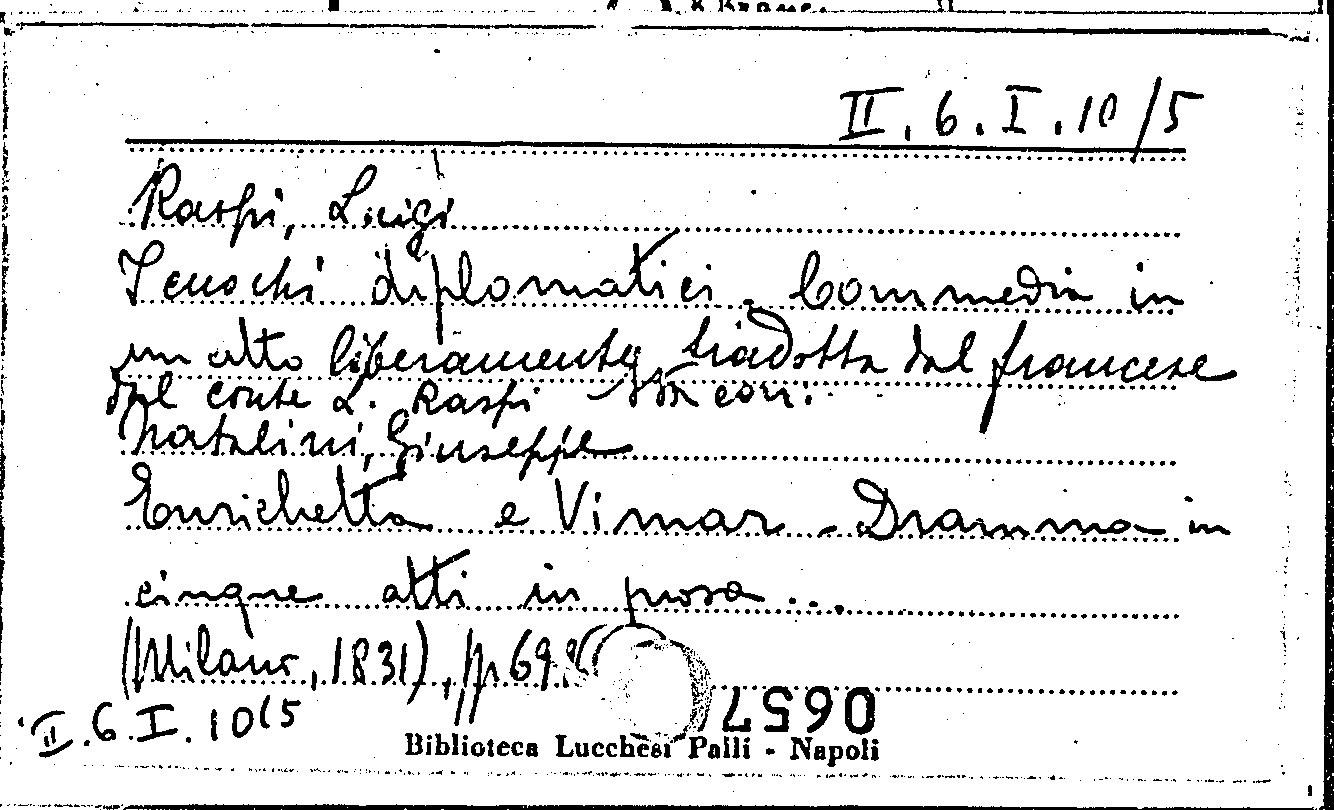 II. 6. I. 10/5
Raspi, Luigi
diplomatici. Commedia in
un atto liberamente tradotta dal francese
dal conte L. Raspi con:
Natalini, Giuseppe
Enrichetta e Vimar. Dramma in
cinque atti in prosa...
(Milano, 1831), pp. 69
0657
II. 6. I. 10(5
Biblioteca Lucchesi Palli - Napoli